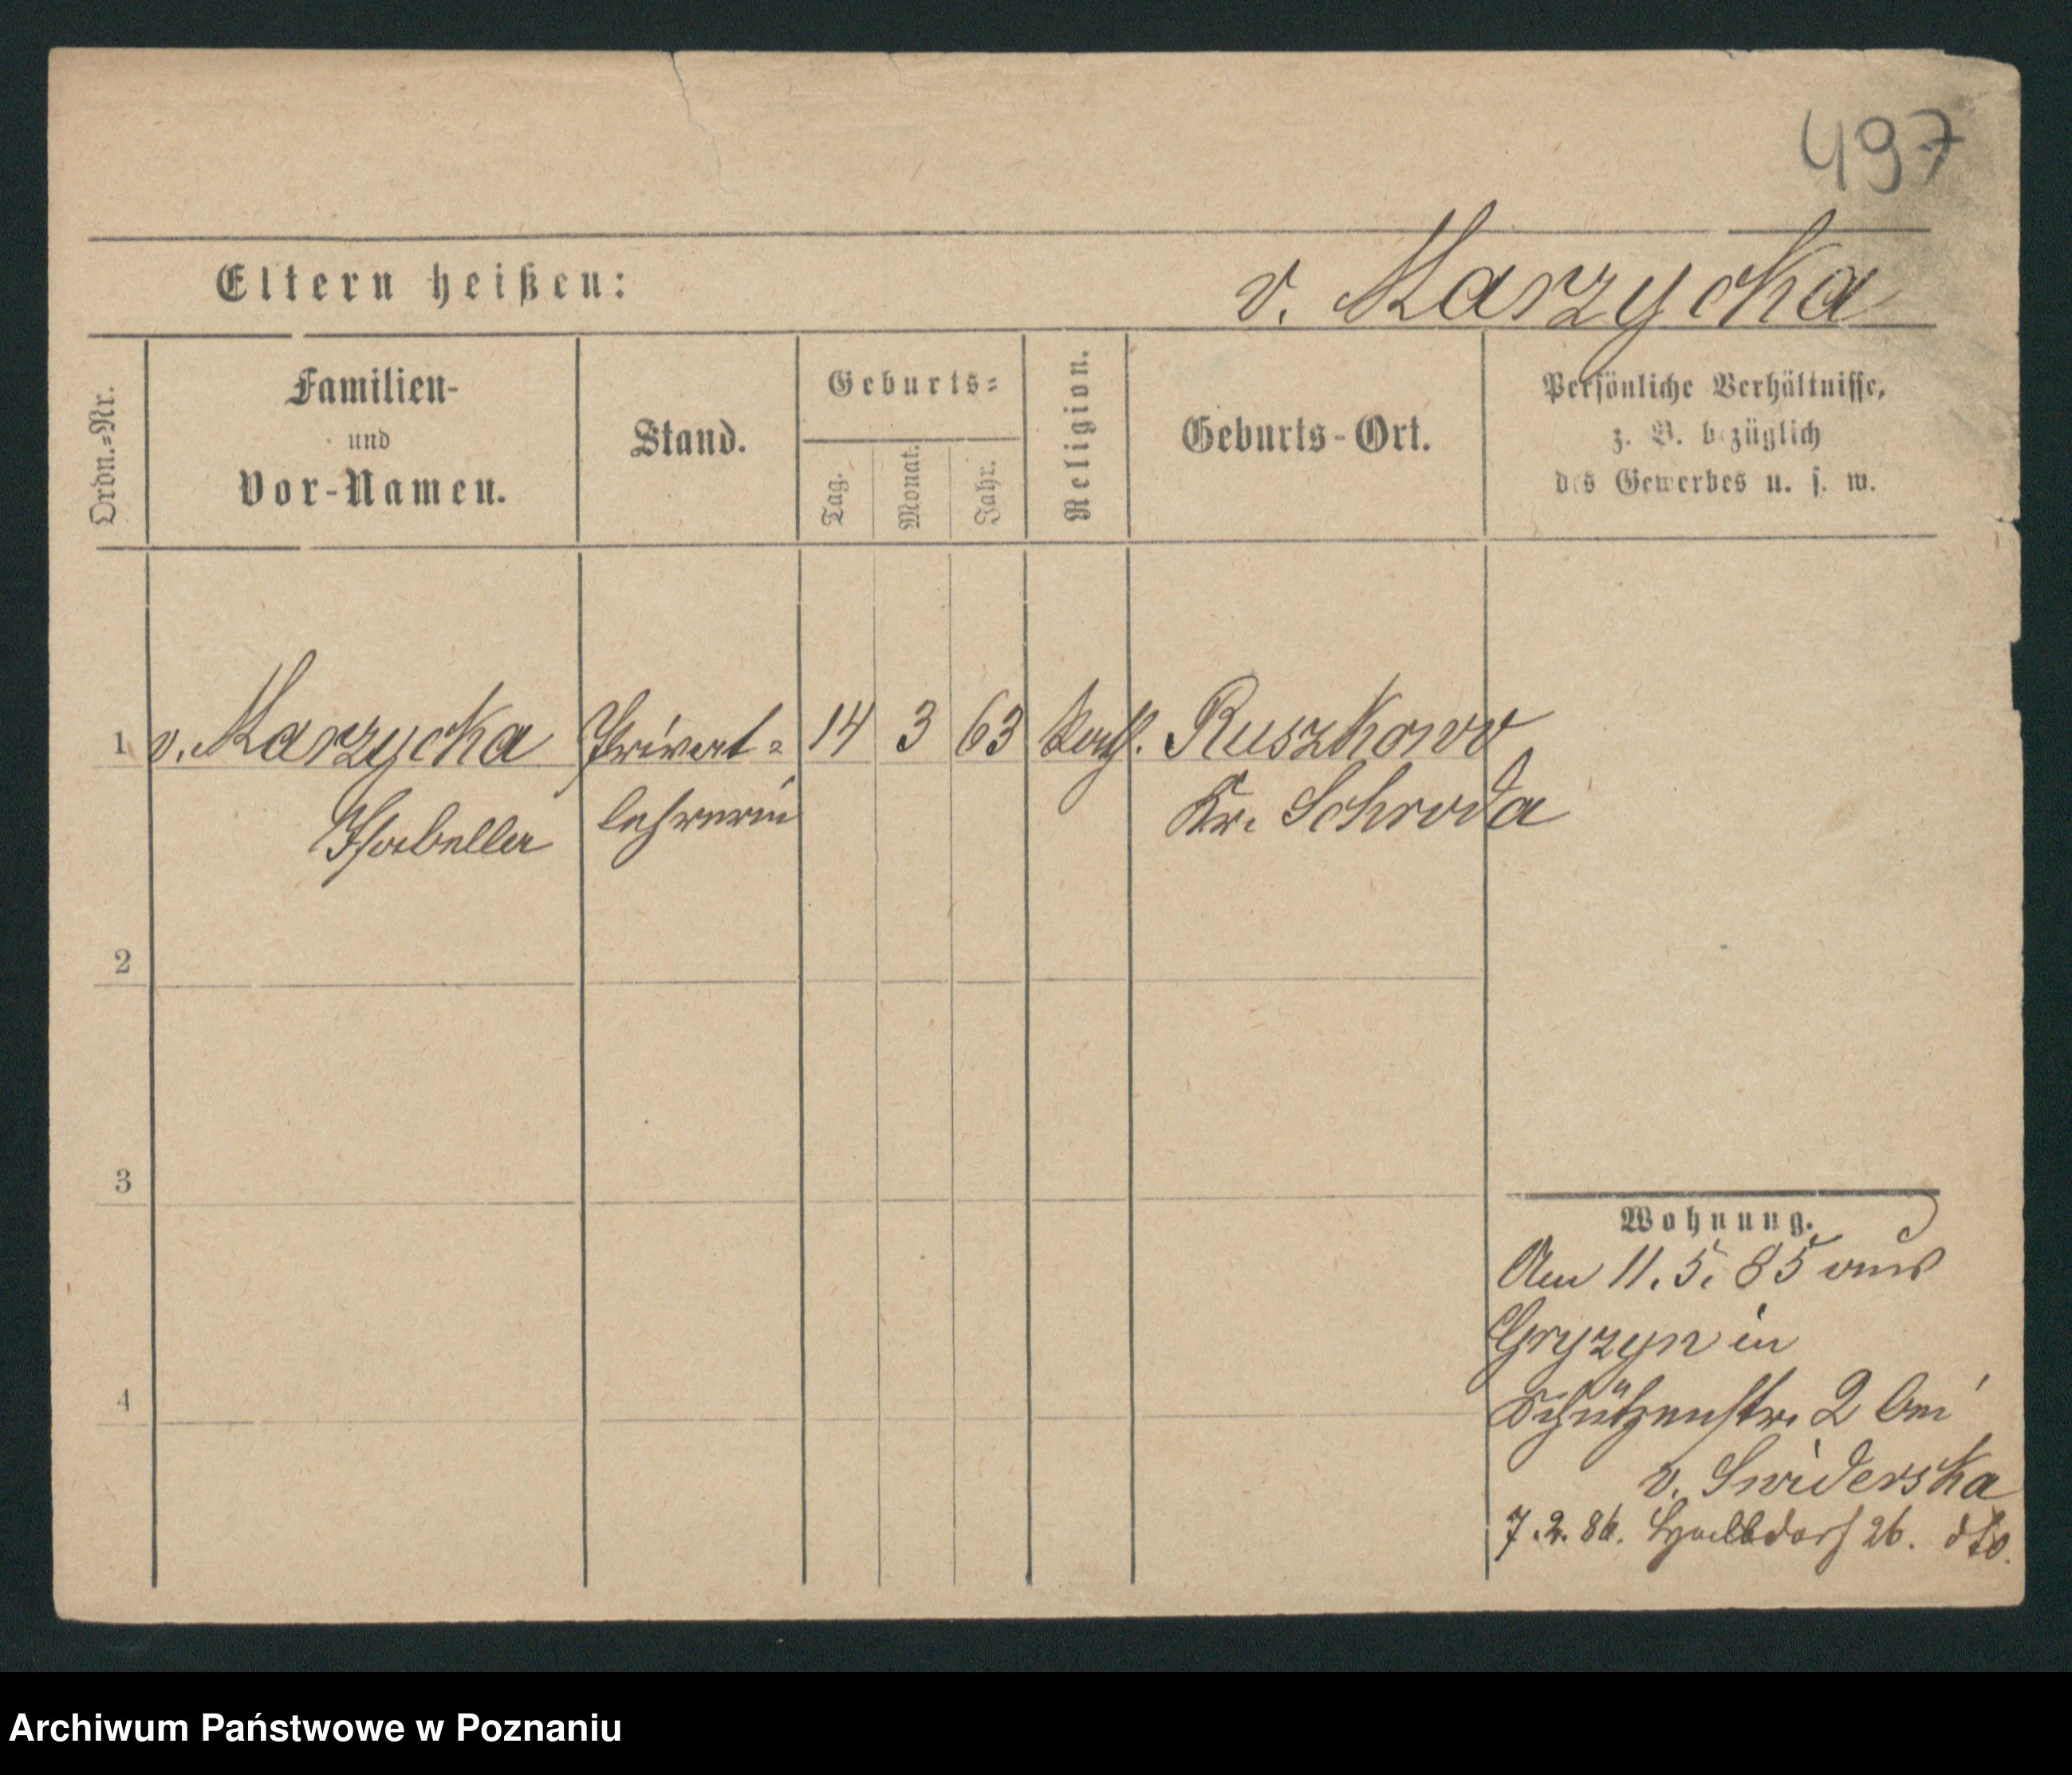 497
Eltern heißen: v. Marzycka
Ordn.=Nr.
Familien-
und
Vor-Namen.
Stand.
Geburts=
Tag.
Monat.
Jahr.
Religion.
Geburts-Ort.
Persönliche Verhältnisse,
z. B. bezüglich
des Gewerbes u. s. w.
1 v. Marzycka Privat= 14 3 63 kath. Ruszkowo
Isabella lehrerin Kr. Schroda
2
3
4
Wohnung.
Am 11. 5. 85 aus
Gryzyn in
Schützenstr. 2 bei
v. Swiderska
7. 2. 86. Halbdorf 26. dto.
Archiwum Państwowe w Poznaniu